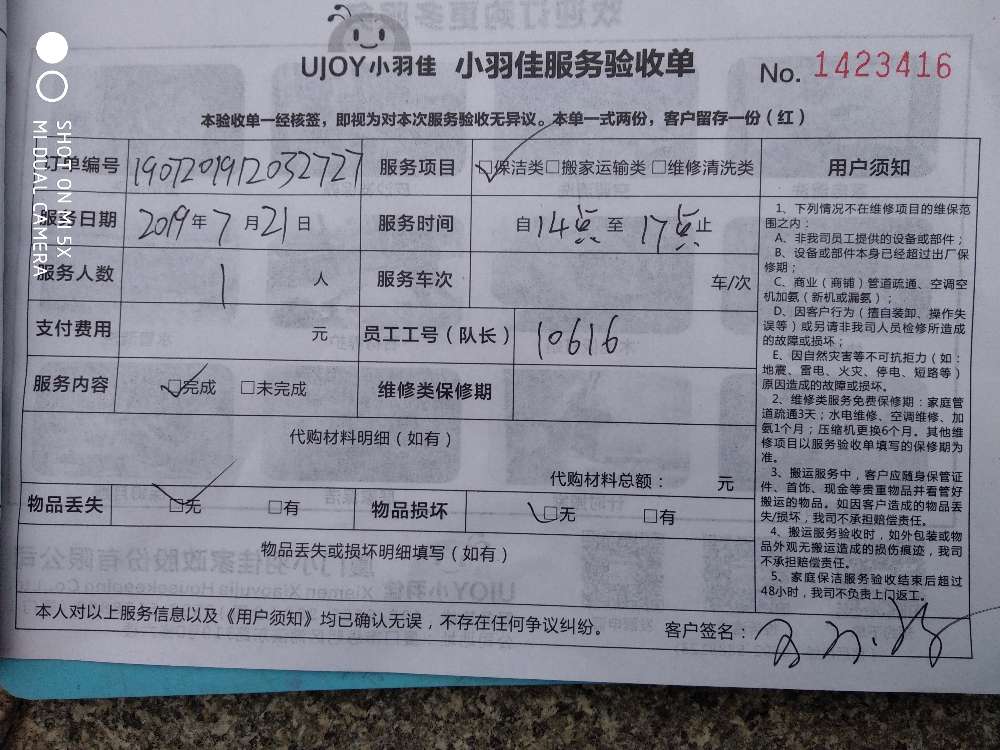 UJOY小羽佳 小羽佳服务验收单 No. 1423416
本验收单一经核签，即视为对本次服务验收无异议。本单一式两份，客户留存一份（红）
订单编号 1907201912032727 服务项目 □保洁类□搬家运输类 □维修清洗类
服务日期 2019年7月21日 服务时间 自14点至17点止
服务人数 1人 服务车次 车/次
支付费用 元 员工工号（队长） 10616
服务内容 □完成 □未完成 维修类保修期
代购材料明细（如有）
代购材料总额： 元
物品丢失 □无 □有 物品损坏 □无 □有
物品丢失或损坏明细填写（如有）
本人对以上服务信息以及《用户须知》均已确认无误，不存在任何争议纠纷。 客户签名：
用户须知
1、下列情况不在维修项目的维保范
围之内：
A、非我司员工提供的设备或部件；
B、设备或部件本身已经超过出厂保
修期；
C、商业（商铺）管道疏通、空调空
机加氨（新机或漏氨）；
D、因客户行为（擅自装卸、操作失
误等）或另请非我司人员检修所造成
的故障或损坏；
E、因自然灾害等不可抗拒力（如：
地震、雷电、火灾、停电、短路等）
原因造成的故障或损坏。
2、维修类服务免费保修期：家庭管
道疏通3天；水电维修、空调维修、加
氨1个月；压缩机更换6个月。其他维
修项目以服务验收单填写的保修期为
准。
3、搬运服务中，客户应随身保管证
件、首饰、现金等贵重物品并看管好
搬运的物品。如因客户造成的物品丢
失/损坏，我司不承担赔偿责任。
4、搬运服务验收时，如外包装或物
品外观无搬运造成的损伤痕迹，我司
不承担赔偿责任。
5、家庭保洁服务验收结束后超过
48小时，我司不负责上门返工。
SHOT ON MI 5X
MI DUAL CAMERA